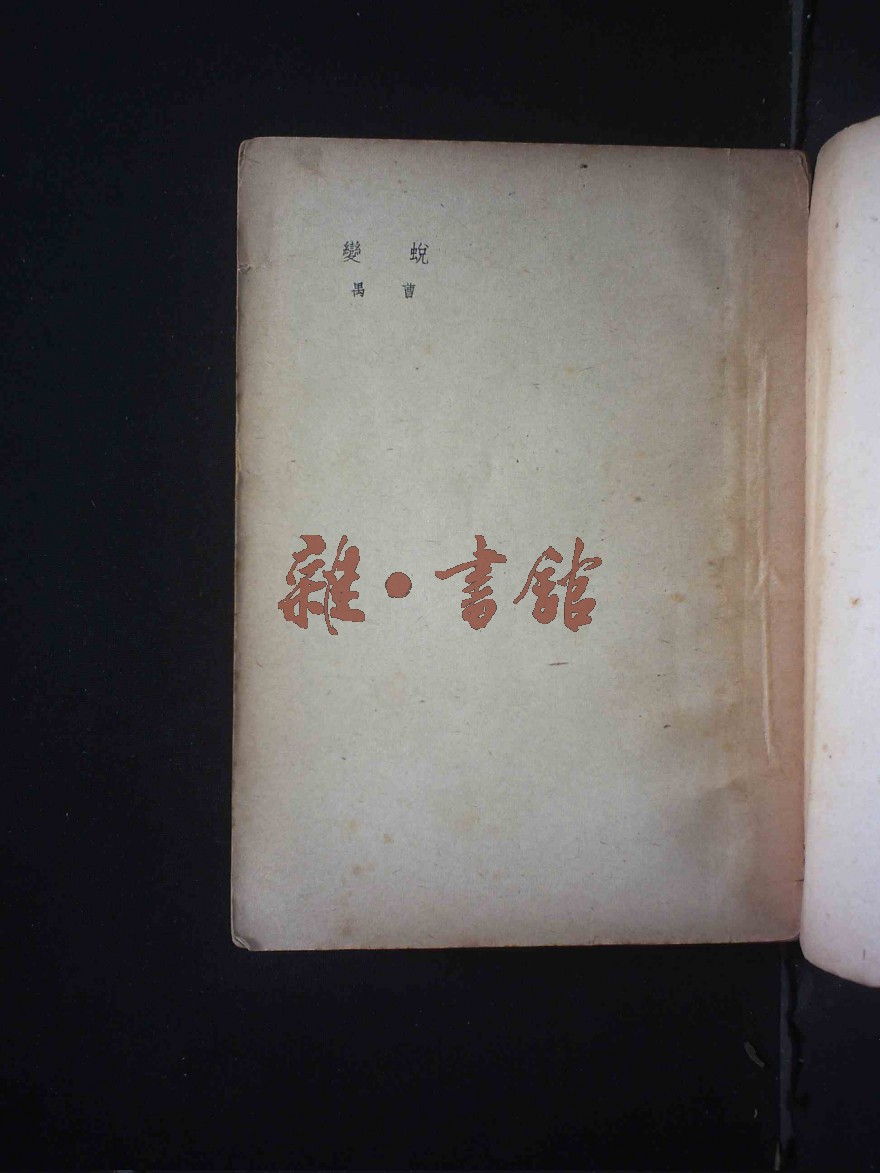 蛻變
曹禺
雜·書館